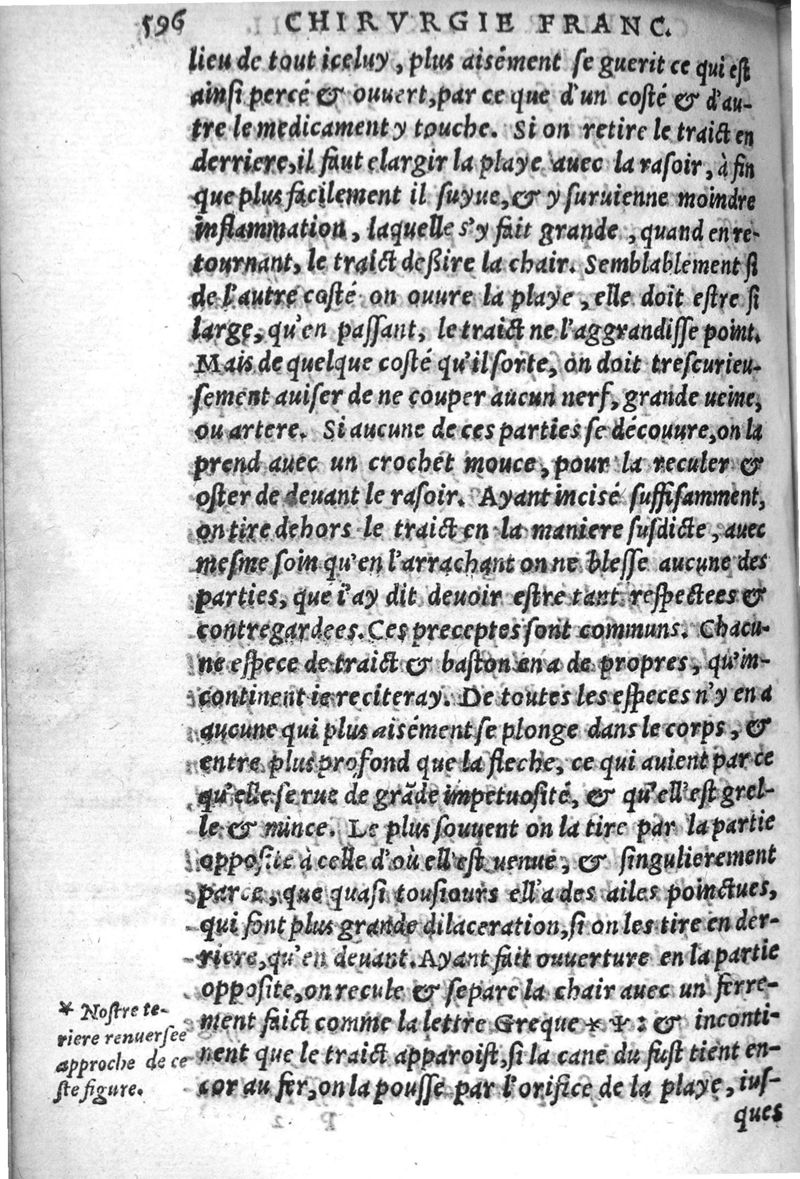 596 CHIRVRGIE FRANC.
lieu de tout iceluy, plus aisément se guerit ce qui est
ainsi percé & ouuert, par ce que d'un costé & d'au-
tre le medicament y touche. Si on retire le traict en
derriere, il faut elargir la playe auec la rasoir, à fin
que plus facilement il suyue, & y suruienne moindre
inflammation, laquelle s'y fait grande, quand en re-
tournant, le traict deßire la chair. Semblablement si
de l'autre costé on ouure la playe, elle doit estre si
large, qu'en passant, le traict ne l'aggrandisse point.
Mais de quelque costé qu'il sorte, on doit trescurieu-
sement auiser de ne couper aucun nerf, grande ueine,
ou artere. Si aucune de ces parties se découure, on la
prend auec un crochet mouce, pour la reculer &
oster de deuant le rasoir. Ayant incisé suffisamment,
on tire dehors le traict en la maniere susdicte, auec
mesme soin qu'en l'arrachant on ne blesse aucune des
parties, que i'ay dit deuoir estre tant respectees &
contregardees. Ces preceptes sont communs. Chacu-
ne espece de traict & baston en a de propres, qu'in-
continent ie reciteray. De toutes les especes n'y en a
aucune qui plus aisément se plonge dans le corps, &
entre plus profond que la fleche, ce qui auient par ce
qu'elle se rue de grãde impetuosité, & qu'ell'est grel-
le & mince. Le plus souuent on la tire par la partie
opposite à celle d'où ell'est uenue, & singulierement
parce, que quasi tousiours ell'a des ailes poinctues,
qui font plus grande dilaceration, si on les tire en der-
riere, qu'en deuant. Ayant fait ouuerture en la partie
opposite, on recule & separe la chair auec un ferre-
ment faict comme la lettre Greque * Ψ : & inconti-
nent que le traict apparoist, si la cane du fust tient en-
cor au fer, on la pousse par l'orifice de la playe, iusques
ques
* Nostre te-
riere renuersee
approche de ce
ste figure.